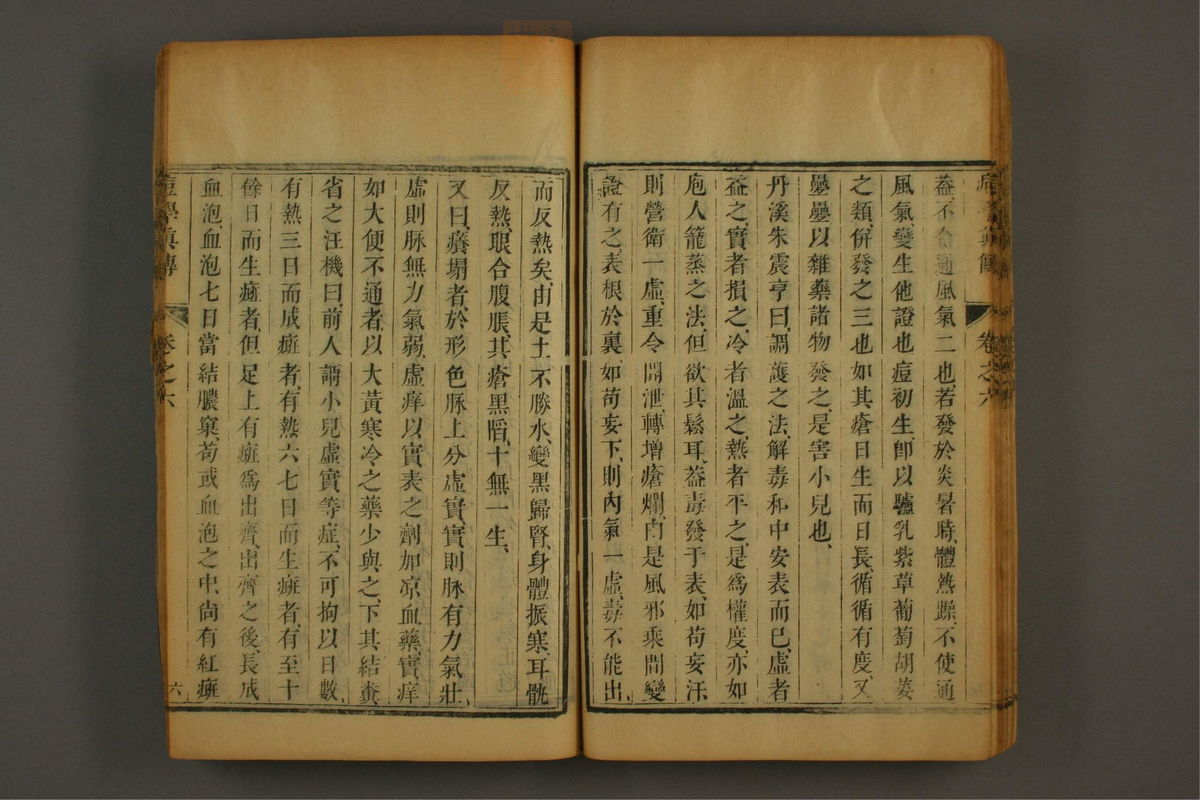 葢不令通風氣二也若發於炎暑時、體熱躁、不使通
風氣、變生他證也痘初生卽以驢乳紫草葡萄胡荽
之類、併發之三也如其瘡日生而日長、循循有度、又
疊疊以雜藥諸物發之、是害小兒也、
丹溪朱震亨曰、調護之法、解毒和中安表而已、虛者
益之、實者損之、冷者溫之、熱者平之、是爲權度、亦如
庖人籠蒸之法、但欲其鬆耳、葢毒發于表、如苟妄汗
則營衞一虛、重令開泄、轉增瘡爛、由是風邪乘間變
證有之、表根於裏、如苟妄下、則內氣一虛、毒不能出、
卷之六
而反熱矣、由是土不勝水、變黑歸腎、身體振寒、耳骫
反熱、眼合腹脹、其瘡黑䧟、十無一生、
又曰、癢塌者、於形色脉上分虛實、實則脉有力氣壯、
虛則脉無力氣弱、虛痒以實表之劑加凉血藥、實痒
如大便不通者、以大黃寒冷之藥少與之、下其結糞
省之汪機曰、前人謂小兒虛實等症、不可拘以日數、
有熱三日而成癍者、有熱六七日而生癍者、有至十
餘日而生癍者、但足上有癍爲出齊、出齊之後、長成
血泡、血泡七日當結膿窠、苟或血泡之中、尙有紅癍
痘學眞傳
卷之六
六